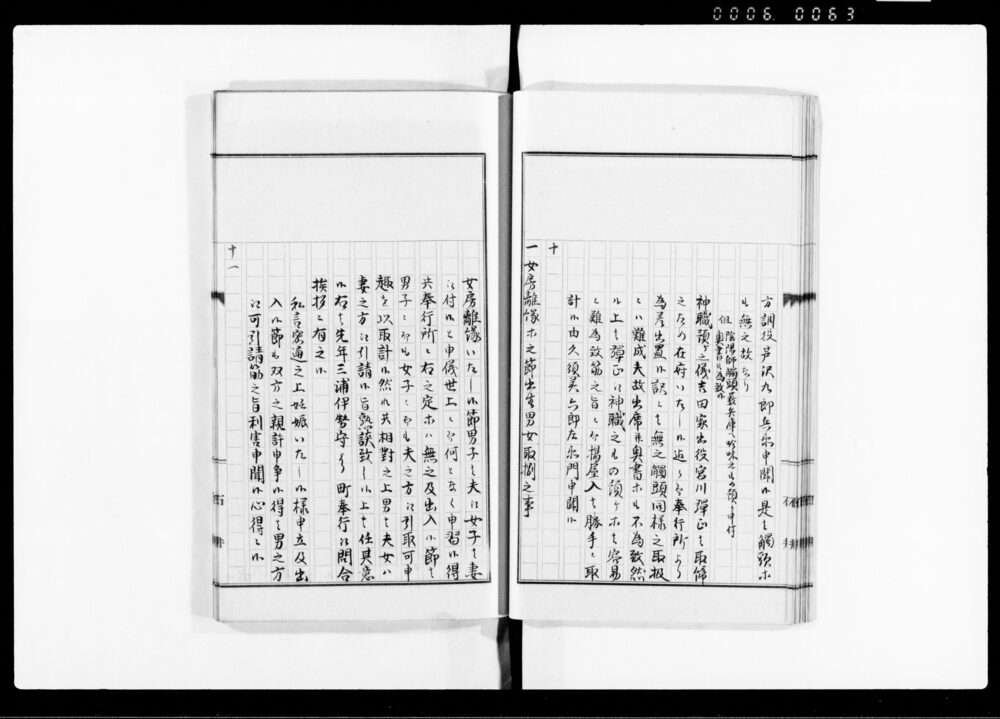 0006. 0063
方調役芦沢九郎兵衛申聞候是ハ觸頭ホ
も無之故なり
神職預ケ之儀吉田家出役宮川彈正ハ取締
之ため在府いたし候迄ニ而奉行所より
為差出置候訳ニハ無之觸頭同様之取扱
ニハ難成夫故出席并奥書ホも不為致然
ル上ハ彈正江神職之もの預ケホハ容易
ニ難為致筋之旨ニ而揚屋入ハ勝手ニ取
計候由久須美六郎左衛門申聞候
十
一女房離縁ホ之節出生男女取捌之事
女房離縁いたし候節男子ハ夫江女子ハ妻
江付候と申儀世上ニ而何となく申習候得
共奉行所ニ右之定ホハ無之及出入候節ハ
男子ニ而も女子ニ而も夫之方江引取可申
趣を以取計候然候共相對之上男ハ夫女ハ
妻之方江引請候旨熟談致し候上ハ任其意
候右ハ先年三浦伊勢守より町奉行江問合
挨拶ニ有之候
私言密通之上妊娠いたし候様申立及出
入候節も双方之親許申争候得ハ男之方
江可引請筋之旨利害申聞候心得ニ候
十一